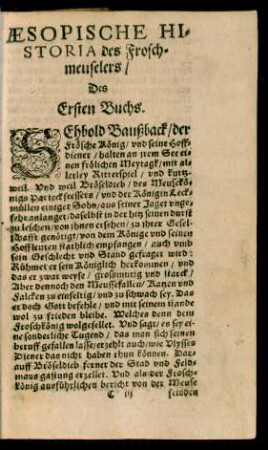 ÆSOPISCHE HI-
STORIA des Frosch-
meuselers/
Des
Ersten Buchs.
SEhbold Baußback/ der
Frösche König/ vnd seine Hoff-
diener/ halten an jrem See ei
nen frölichen Meytagk/ mit al-
lerley Ritterspiel/ vnd kurtz-
weil. Vnd weil Bröseldieb/ des Meusekö-
nigs Parteckfressers/ vnd der Königin Leck-
müllen einiger Sohn/ aus seiner Jaget vnge-
fehr anlanget/ daselbst in der hitz seinen durst
zu leschen/ von jhnen ersehen/ zu jhrer Gesel-
schafft genötigt/ von dem Könige vnd seinen
Hoffleuten stathlich empfangen/ auch vmb
sein Geschlecht vnd Stand gefraget wird:
Rühmet er sein Königlich herkommen/ vnd
das er zwar weyse/ grosmütig vnd starck/
Aber dennoch den Meussefallen/ Katzen vnd
Falcken zu einfeltig/ vnd zu schwach sey. Das
er doch Gott befehle/ vnd mit seinem stande
wol zu frieden bleibe. Welches denn dem
Froschkönig wolgefellet. Vnd sagt/ es sey ei
ne sonderliche Tugend/ das man sich seinen
beruff gefallen lasse/ erzehlt auch/ wie Vlysses
Diener das nicht haben thun können. Dar-
auff Bröseldieb ferner der Stad vnd Feld-
maus gastung erzellet. Vnd als der Frosch-
könig ausführlichen bericht von der Meuse
C iij feinden